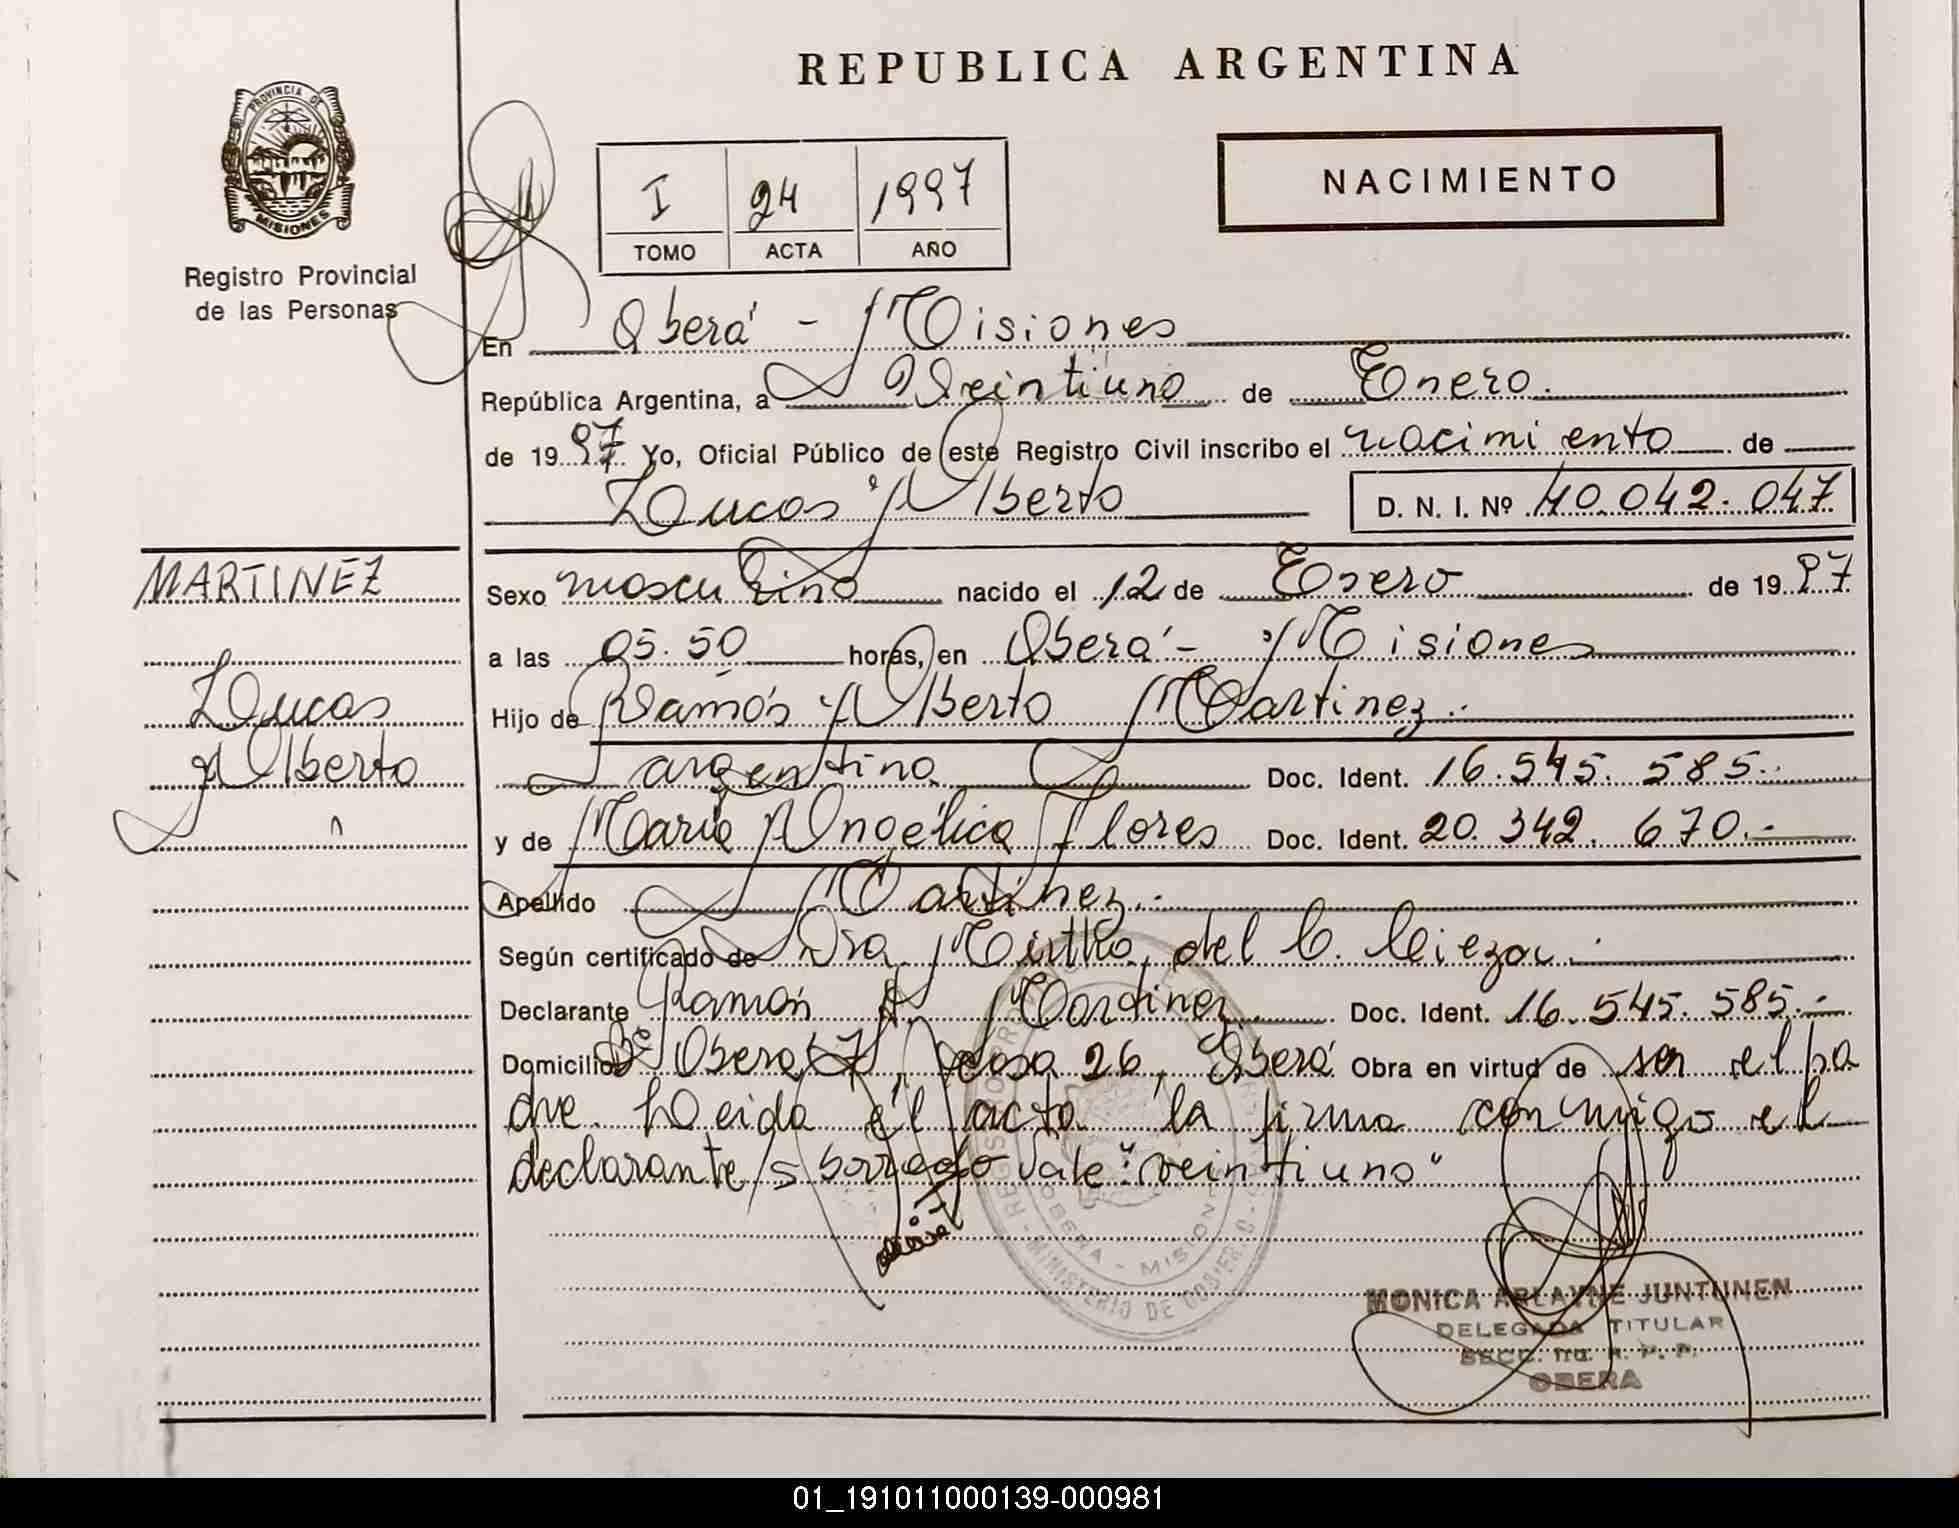 REPUBLICA ARGENTINA
PROVINCIA DE
MISIONES
Registro Provincial
de las Personas
I 24 1997
TOMO ACTA AÑO
NACIMIENTO
En Oberá - Misiones
República Argentina, a Veintiuno de Enero.
de 1997 Yo, Oficial Público de este Registro Civil inscribo el nacimiento de
Lucas Alberto D. N. I. Nº 40.042.047
MARTINEZ
Lucas
Alberto
Sexo masculino nacido el 12 de Enero de 1997
a las 05.50 horas, en Oberá - Misiones
Hijo de Ramón Alberto Martinez.
argentino Doc. Ident. 16.545.585.-
y de María Angélica Flores Doc. Ident. 20.342.670.-
Apellido Martinez.-
Según certificado de Dra. Mirtha del C. Cieza.
Declarante Ramón A. Martinez Doc. Ident. 16.545.585.-
Domicilio Bº Oberá 7, casa 26, Oberá Obra en virtud de ser el pa
dre. Leida el acta la firma conmigo el
declarante/s borrado Vale: "veintiuno"
OBERA - MISIONES
MINISTERIO DE GOBIERNO
MONICA ARLAYNE JUNTUNEN
DELEGADA TITULAR
SECC. 1ra. R. P. P.
OBERA
01_191011000139-000981